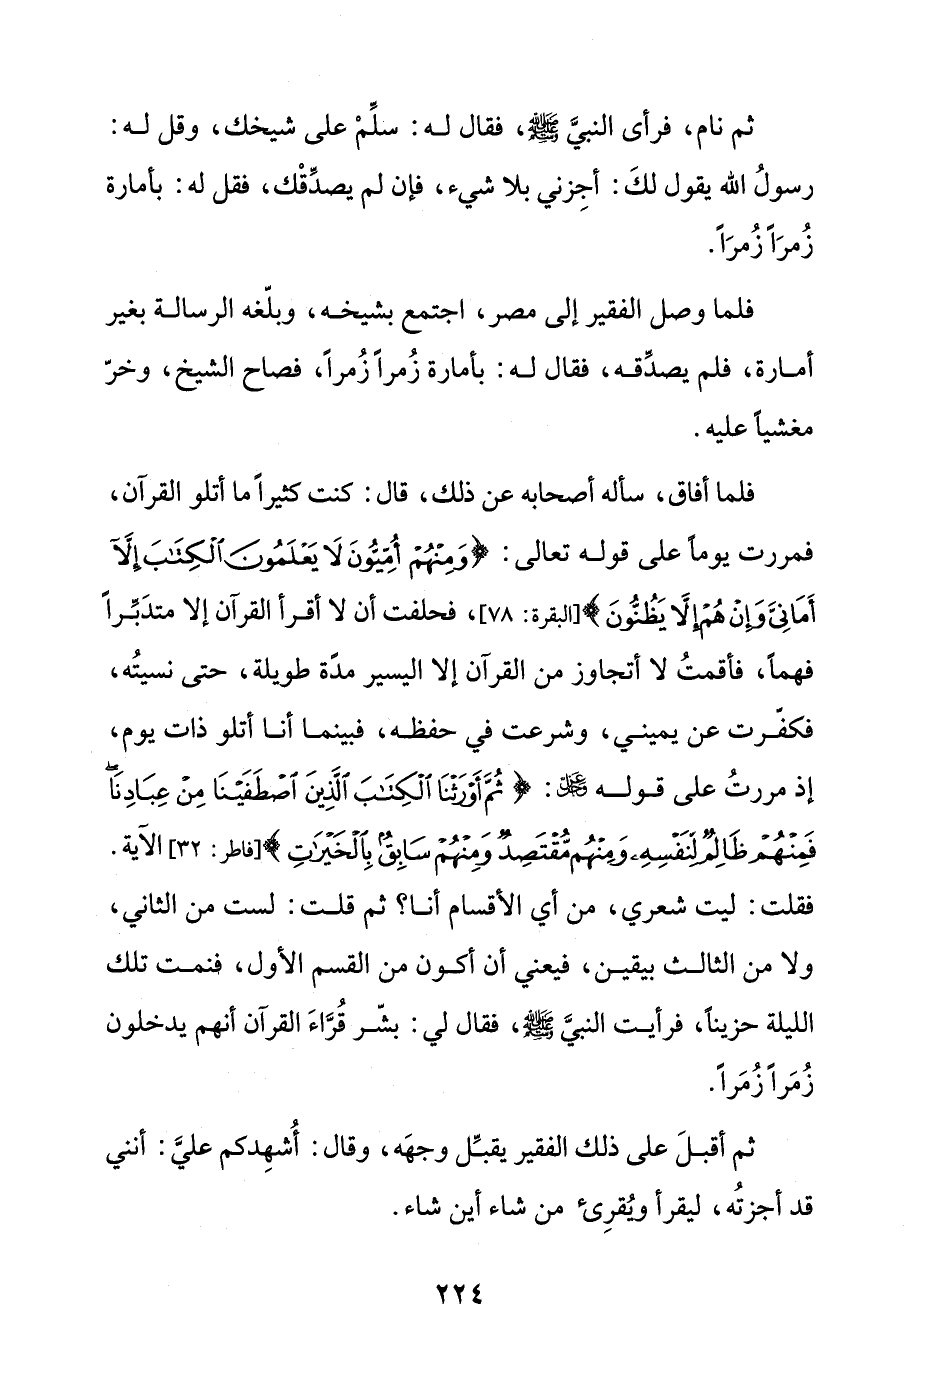 ثم نام، فرأى النبيَّ ﷺ، فقال لـه: سلِّمْ على شيخك، وقل لـه:
رسولُ الله يقول لكَ: أجِزني بلا شيء، فإن لم يصدِّقْك، فقل له: بأمارة
زُمرَاً زُمرَاً.
فلما وصل الفقير إلى مصر، اجتمع بشيخـه، وبلّغه الرسالـة بغير
أمـارة، فلم يصدِّقـه، فقال لـه: بأمارة زُمراً زُمراً، فصاح الشيخ، وخرّ
مغشياً عليه.
فلما أفاق، سأله أصحابه عن ذلك، قال: كنت كثيراً ما أتلو القرآن،
فمررت يوماً على قولـه تعالى: ﴿وَمِنْهُمْ أُمِّيُّونَ لَا يَعْلَمُونَ ٱلْكِتَٰبَ إِلَّآ
أَمَانِىَّ وَإِنْ هُمْ إِلَّا يَظُنُّونَ﴾[البقرة: ٧٨]، فحلفت أن لا أقـرأ القرآن إلا متدَبِّراً
فهماً، فأقمتُ لا أتجاوز من القرآن إلا اليسير مدّة طويلة، حتى نسيتُه،
فكفّـرت عن يمينـي، وشرعت في حفظـه، فبينمـا أنـا أتلو ذات يوم،
إذ مررتُ على قولـه ﷻ: ﴿ثُمَّ أَوْرَثْنَا ٱلْكِتَٰبَ ٱلَّذِينَ ٱصْطَفَيْنَا مِنْ عِبَادِنَا ۖ
فَمِنْهُمْ ظَالِمٌ لِّنَفْسِهِۦ وَمِنْهُم مُّقْتَصِدٌ وَمِنْهُمْ سَابِقٌۢ بِٱلْخَيْرَٰتِ﴾[فاطر: ٣٢] الآية.
فقلت: ليت شعري، من أي الأقسام أنـا؟ ثم قلـت: لست من الثاني،
ولا من الثالـث بيقيـن، فيعني أن أكـون من القسم الأول، فنمـت تلك
الليلة حزيناً، فرأيـت النبيَّ ﷺ، فقال لي: بشّـر قُرَّاءَ القرآن أنهم يدخلون
زُمَراً زُمَراً.
ثم أقبـلَ على ذلك الفقير يقبِّـل وجهَه، وقال: أُشهِدكم عليَّ: أنني
قد أجزتُه، ليقرأ ويُقرِئ من شاء أين شاء.
٢٢٤